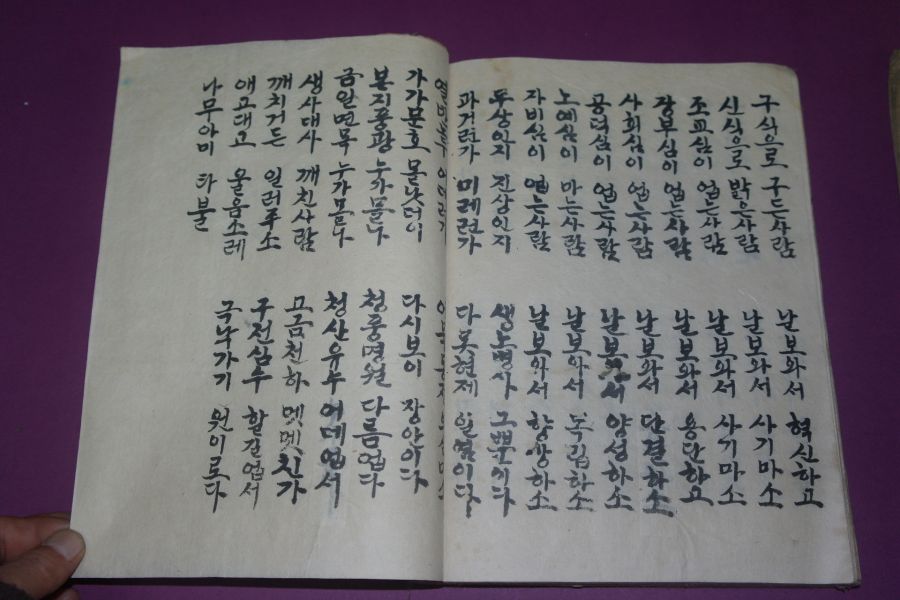 구식으로 구든사람 날보와서 혁신하고
신식으로 밝은사람 날보와서 사기마소
조교심이 업는사람 날보와서 사기마소
장부심이 업는사람 날보와서 용단하고
사회심이 업는사람 날보와서 단결하소
공덕심이 업는사람 날보와서 양성하소
노예심이 마는사람 날보와서 독립하소
자비심이 업는사람 날보와서 향상하소
무상인지 진상인지 생노병사 그뿐이다
과거런가 미레런가 다못현제 일염이다
가가문호 몰낫더이 다시보이 장안이다
본지풍광 누가몰나 청풍명월 다름업다
금일면목 누가몰나 청산유수 어데업서
생사대사 깨친사람 고금천하 멧멧친가
깨치거든 일러주소 구전심수 할길업서
애고대고 울음소레 극낙가기 원이로다
나무아미 타불